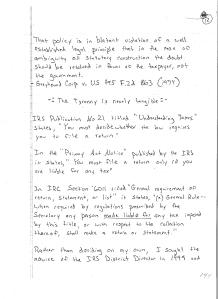 That policy is in blatant violation of a well
established legal principle that in the case of
ambiguity of statutory construction the doubt
should be resolved in favor of the taxpayer, not
the government.
- Greyhound Corp v. US 495 F.2d 863 (1974)
- The Tyranny is nearly tangible -
IRS Publication No 21 titled "Understanding Taxes"
states, "You must decide whether the law requires
you to file a return."
In the "Privacy Act Notice" published by the IRS
it states, "You must file a return only if you
are liable for any tax"
In IRC Section 6011 titled "General requirement of
return, statement, or list", it states, "(a) General Rule -
When required by regulations prescribed by the
Secretary any person made liable for any tax imposed
by this title, or with respect to the collection
thereof, shall make a return or statement."
Rather than deciding on my own, I sought the
advice of the IRS District Director in 1999 and